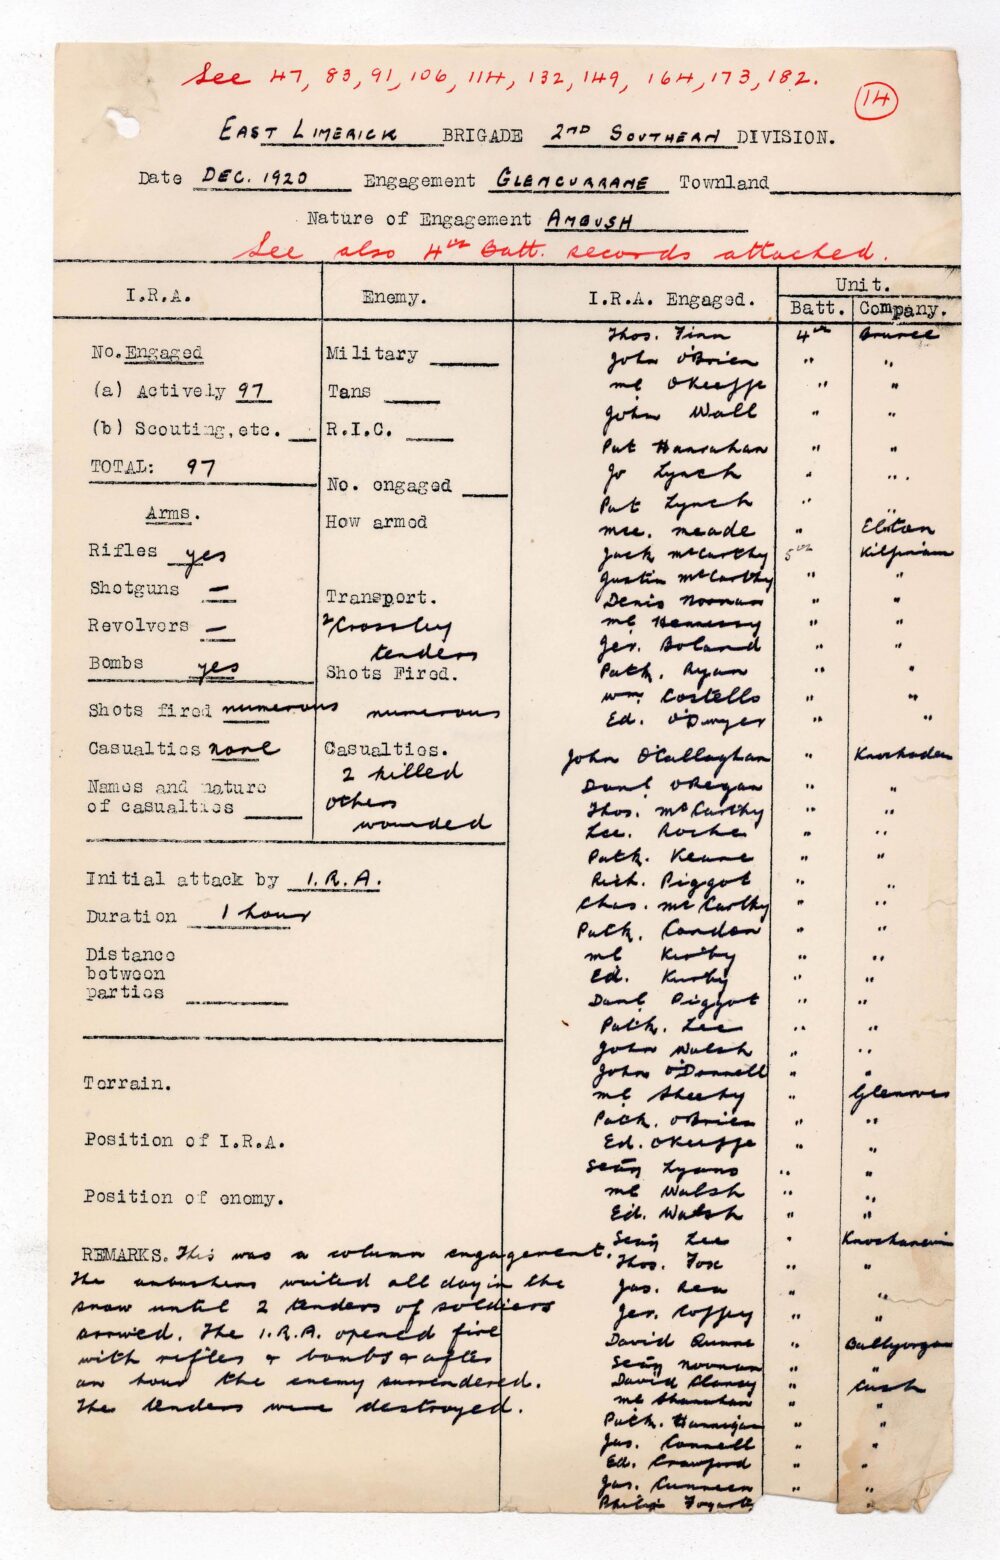 See 47, 83, 91, 106, 114, 132, 149, 164, 173, 182.
14
EAST LIMERICK BRIGADE 2ND SOUTHERN DIVISION.
Date DEC. 1920 Engagement GLENCURRANE Townland
Nature of Engagement AMBUSH
See also 4th Batt. records attached.
I.R.A.
Enemy.
I.R.A. Engaged.
Unit.
Batt. Company.
No. Engaged
(a) Actively 97
(b) Scouting, etc.
TOTAL: 97
Arms.
Rifles yes
Shotguns —
Revolvers —
Bombs yes
Shots fired numerous
Casualties none
Names and nature
of casualties
Military
Tans
R.I.C.
No. engaged
How armed
Transport.
2 Crossley
tenders
Shots Fired.
numerous
Casualties.
2 killed
others
wounded
Initial attack by I.R.A.
Duration 1 hour
Distance
between
parties
Terrain.
Position of I.R.A.
Position of enemy.
REMARKS. This was a column engagement.
The ambushers waited all day in the
snow until 2 tenders of soldiers
arrived. The I.R.A. opened fire
with rifles & bombs & after
an hour the enemy surrendered.
The tenders were destroyed.
Thos. Finn 4th Bruree
John O'Brien " "
Ml O'Keeffe " "
John Wall " "
Pat Hanrahan " "
Jo Lynch " "
Pat Lynch " "
Mce. Meade " Effin
Jack McCarthy 5th Kilfinane
Justin McCarthy " "
Denis Noonan " "
Ml Hennessy " "
Jer. Boland " "
Patk. Ryan " "
Wm Costello " "
Ed. O'Dwyer " "
John O'Callaghan "
Danl O'Regan " "
Thos. McCarthy " "
Lee. Roche " "
Patk. Keane " "
Rich. Piggot " "
Chas. McCarthy " "
Patk. Condon " "
Ml Kirby " "
Ed. Kirby " "
Danl Piggot " "
Patk. Lee " "
John Walsh " "
John O'Donnell " "
Ml Sheehy " Glenroe
Patk. O'Brien " "
Ed. O'Keeffe " "
Seán Lyons " "
Ml Walsh " "
Ed. Walsh " "
Seán Lee "
Thos. Fox " "
Jas. Rea " "
Jer. Coffey " "
David " Ballyorgan
Seán Noonan " "
David Clancy " Cush
Ml Shanahan " "
Patk. Hannigan " "
Jas. Connell " "
Ed. Crawford " "
Jas. Cunneen " "
Philip Fogarty "